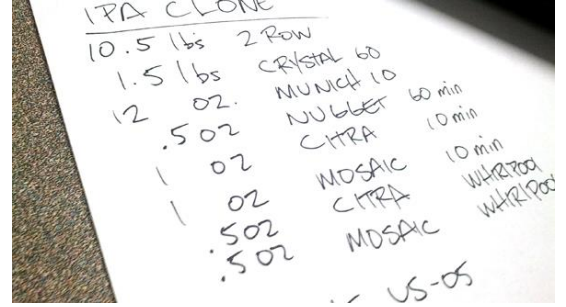 IPA CLONE
10.5 lbs 2 ROW
1.5 lbs CRYSTAL 60
12 OZ. MUNICH 10
.5 OZ NUGGET 60 min
1 OZ CITRA 10 min
1 OZ MOSAIC 10 min
.5OZ CITRA WHIRLPOOL
.5 OZ MOSAIC WHIRLPOOL
US-05